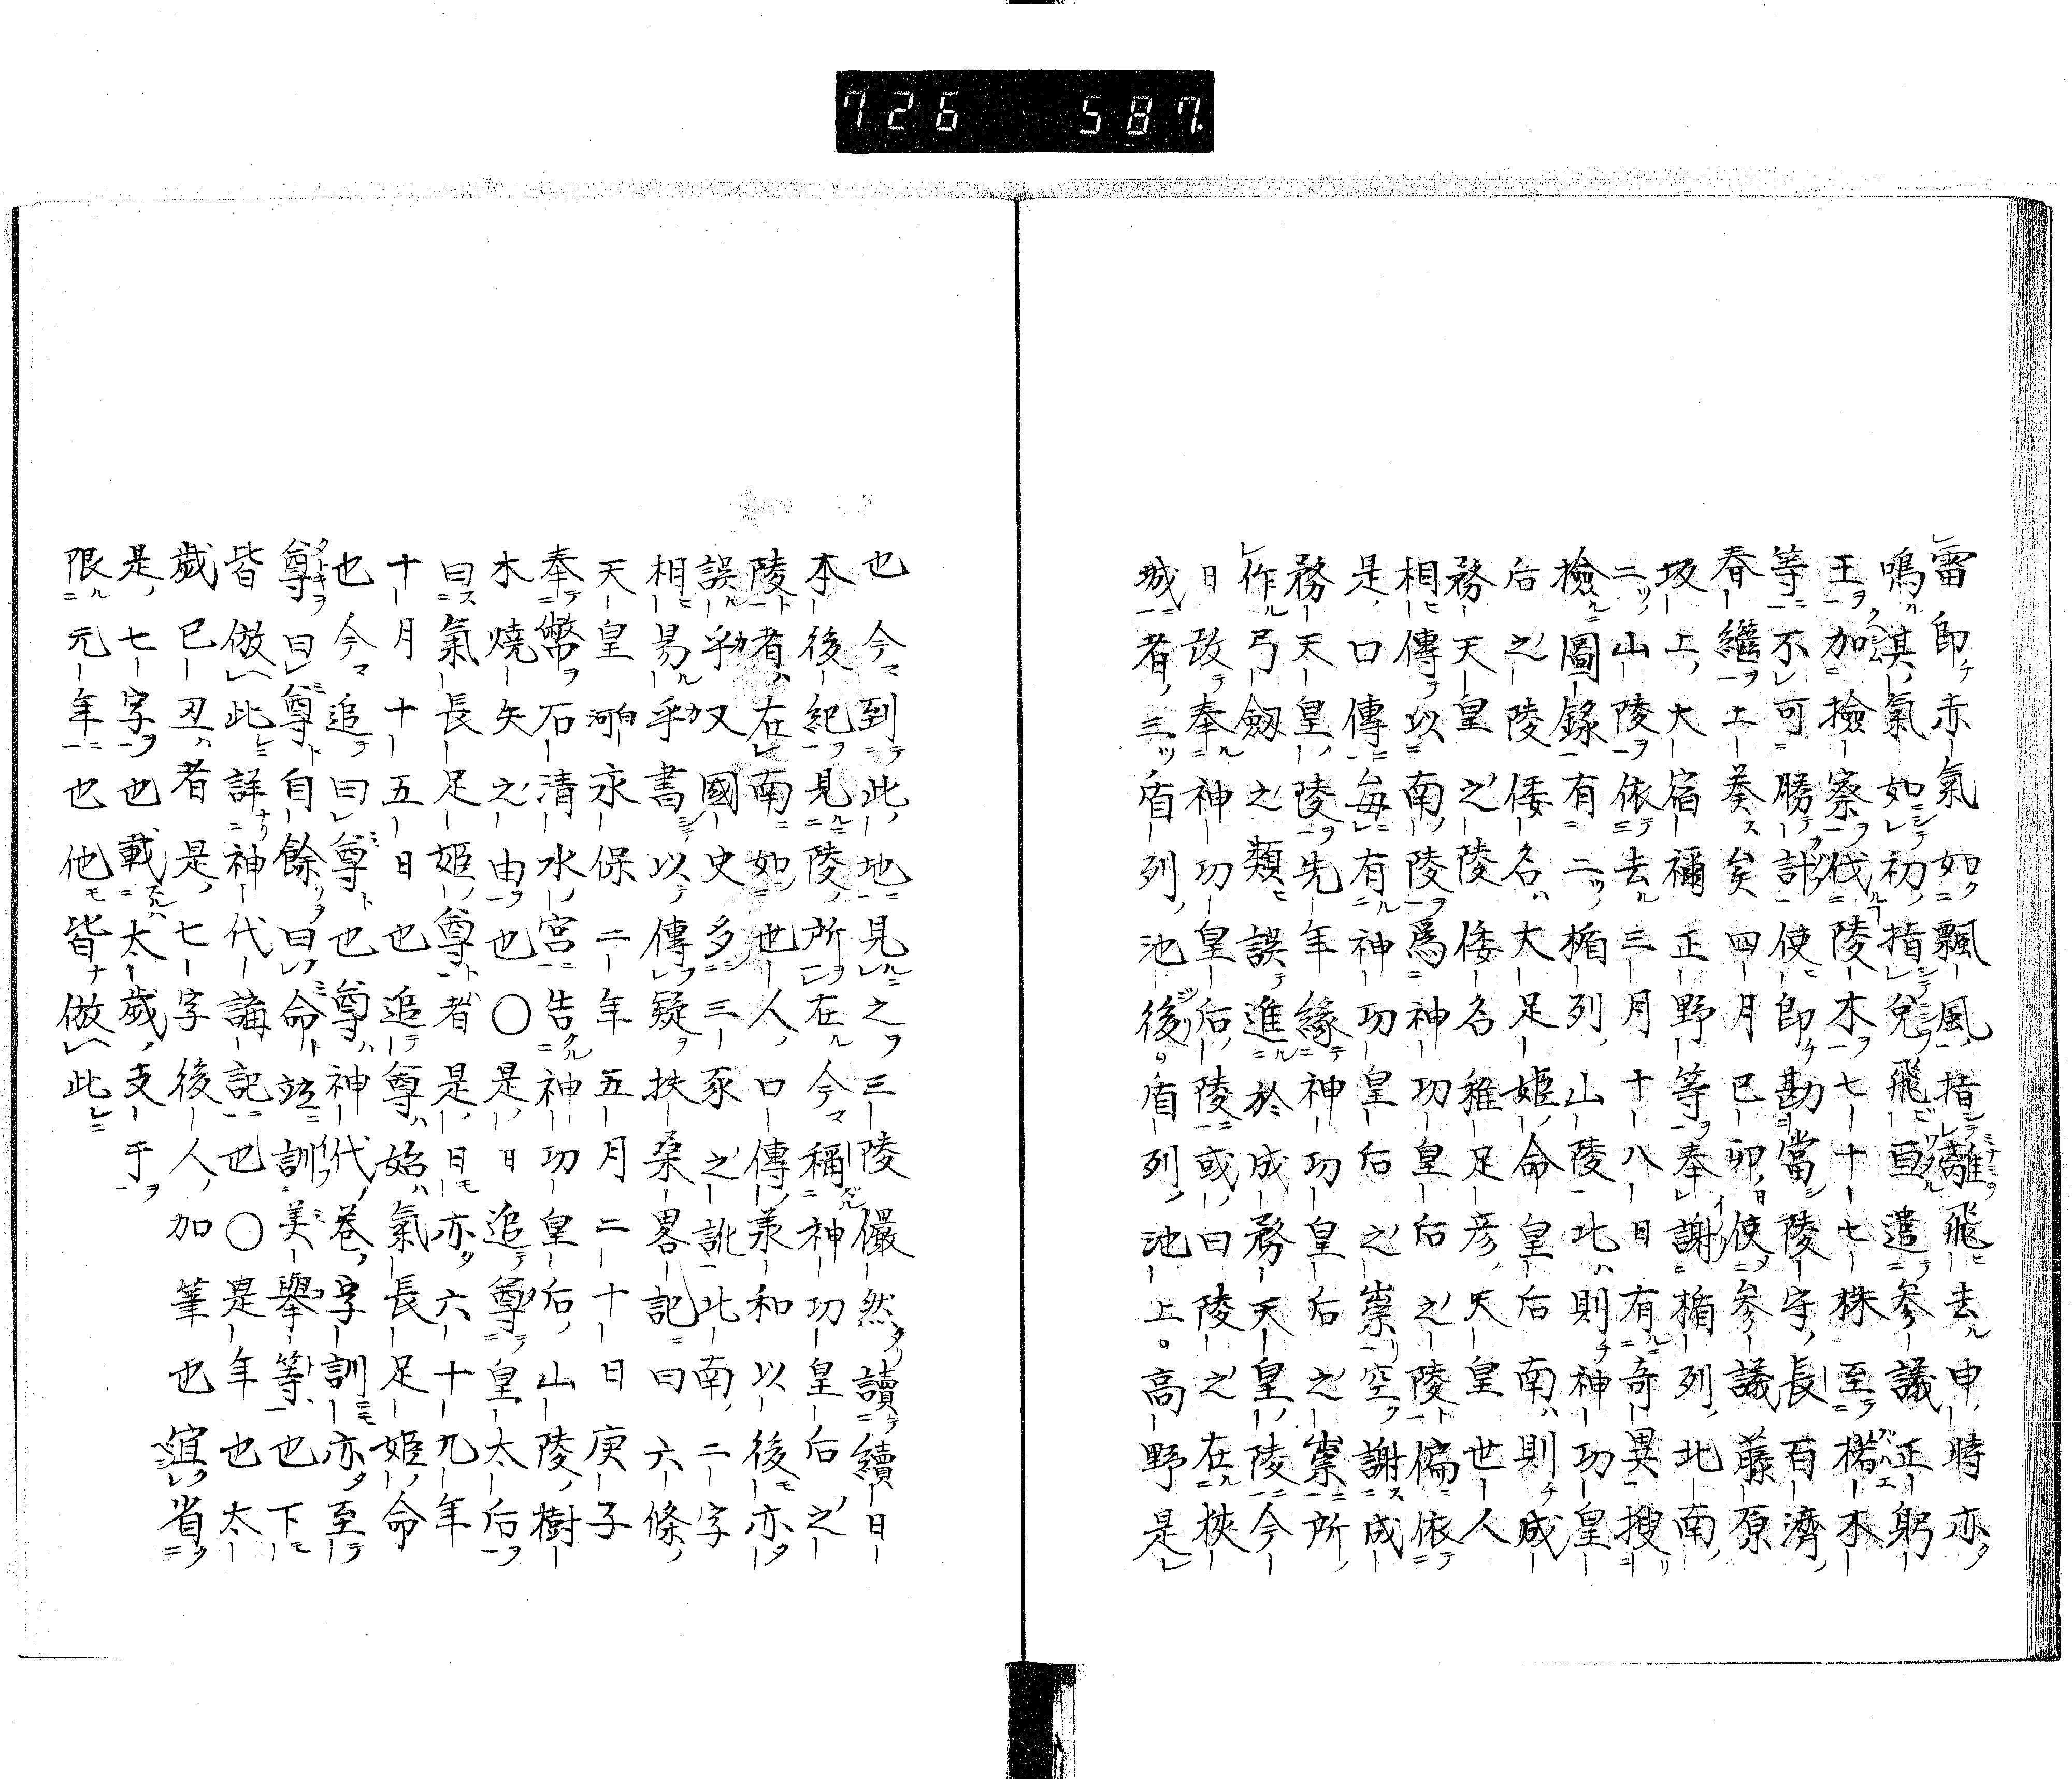 726 587.
雷即亦氣如飄風指離飛去申時亦
鳴其氣如初指兌飛亘遣參議正躬
王加撿察伐陵木七十七株至楉木
等不可勝計使即勘當陵守長百濟
春繼上葵矣四月已卯使參議藤原
坂上大宿禰正野等奉謝楯列北南
二山陵依去三月十八日有奇異搜
撿圖錄有二楯列山陵北則神功皇
后之陵倭名大足姬命皇后南則成
務天皇之陵倭名稚足彦天皇世人
相傳以南陵爲神功皇后之陵偏依
是口傳每有神功皇后之祟空謝成
務天皇陵先年緣神功皇后之祟所
作弓劔之類誤進於成務天皇陵今
日改奉神功皇后陵或曰陵之在挾
城者三盾列池後。盾列池上。高野是
也今到此地見之三陵儼然讀續日
本後紀見陵所在今稱神功皇后之
陵者在南如世人口傳承和以後亦
誤乎又國史多三豕之訛北南二字
相易乎書以傳疑扶桑畧記曰六條
天皇白河永保二年五月二十日庚子
奉幣石清水宮告神功皇后山陵樹
木燒矢之由也〇是日追尊皇太后
曰氣長足姬尊者是日亦六十九年
十月十五日也追尊始氣長足姬命
也今追曰尊也尊神代卷字訓亦至
尊曰尊自餘曰命竝訓美擧等也下
皆倣此詳神代講記也〇是年也太
歲已丑者是七字後人加筆也宜省
是七字也載太歲支于
限元年也他皆倣此